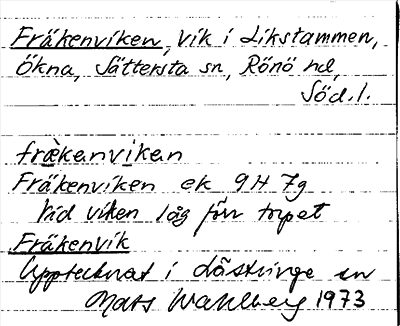 Fräkenviken, vik i Likstammen,
Ökna, Sättersta sn, Rönö hd,
Söd. l.
frä̀kenviken
Fräkenviken ek 9H 7g
Vid viken låg förr torpet
Fräkenvik
Upptecknat i Lästringe sn
Mats Wahlberg 1973